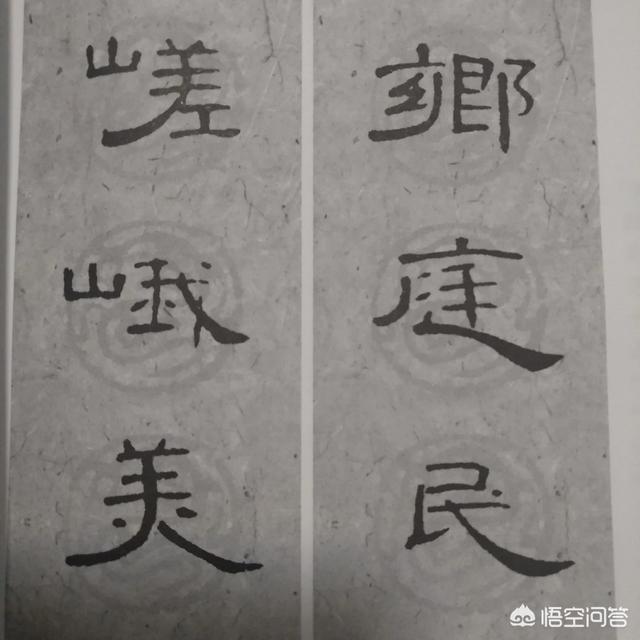 鄉庭民
嵯峨美
悟空问答